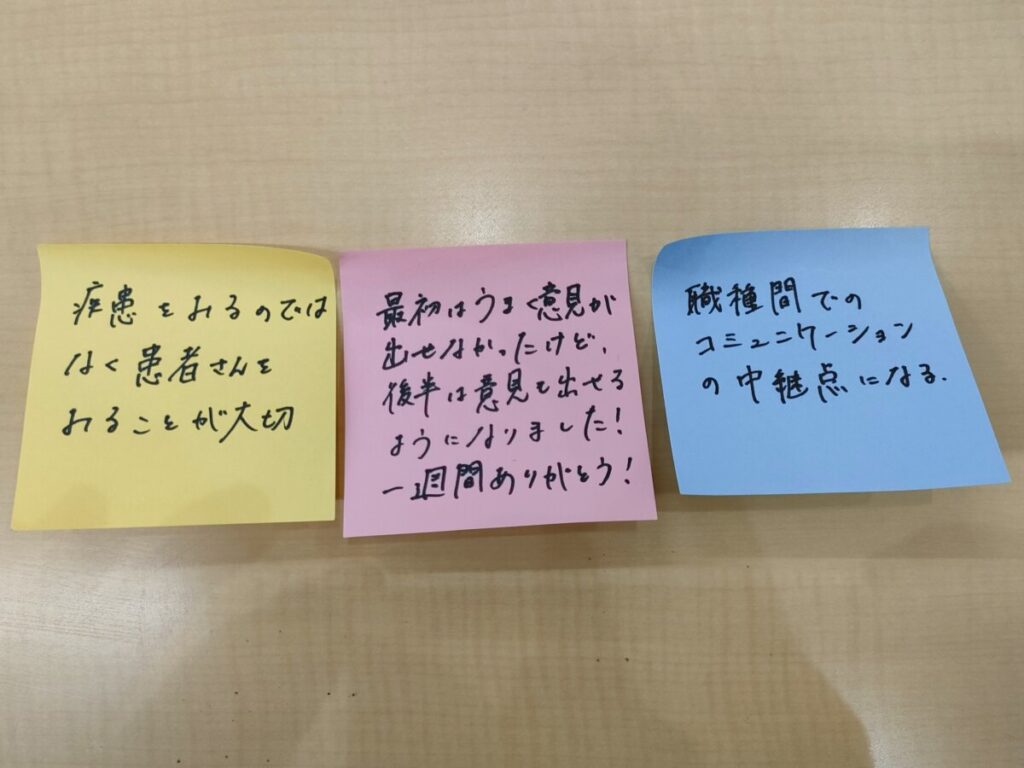 疾患をみるのでは
なく患者さんを
みることが大切
最初はうまく意見が
出せなかったけど、
後半は意見を出せる
ようになりました!
一週間ありがとう!
職種間での
コミュニケーション
の中継点になる.